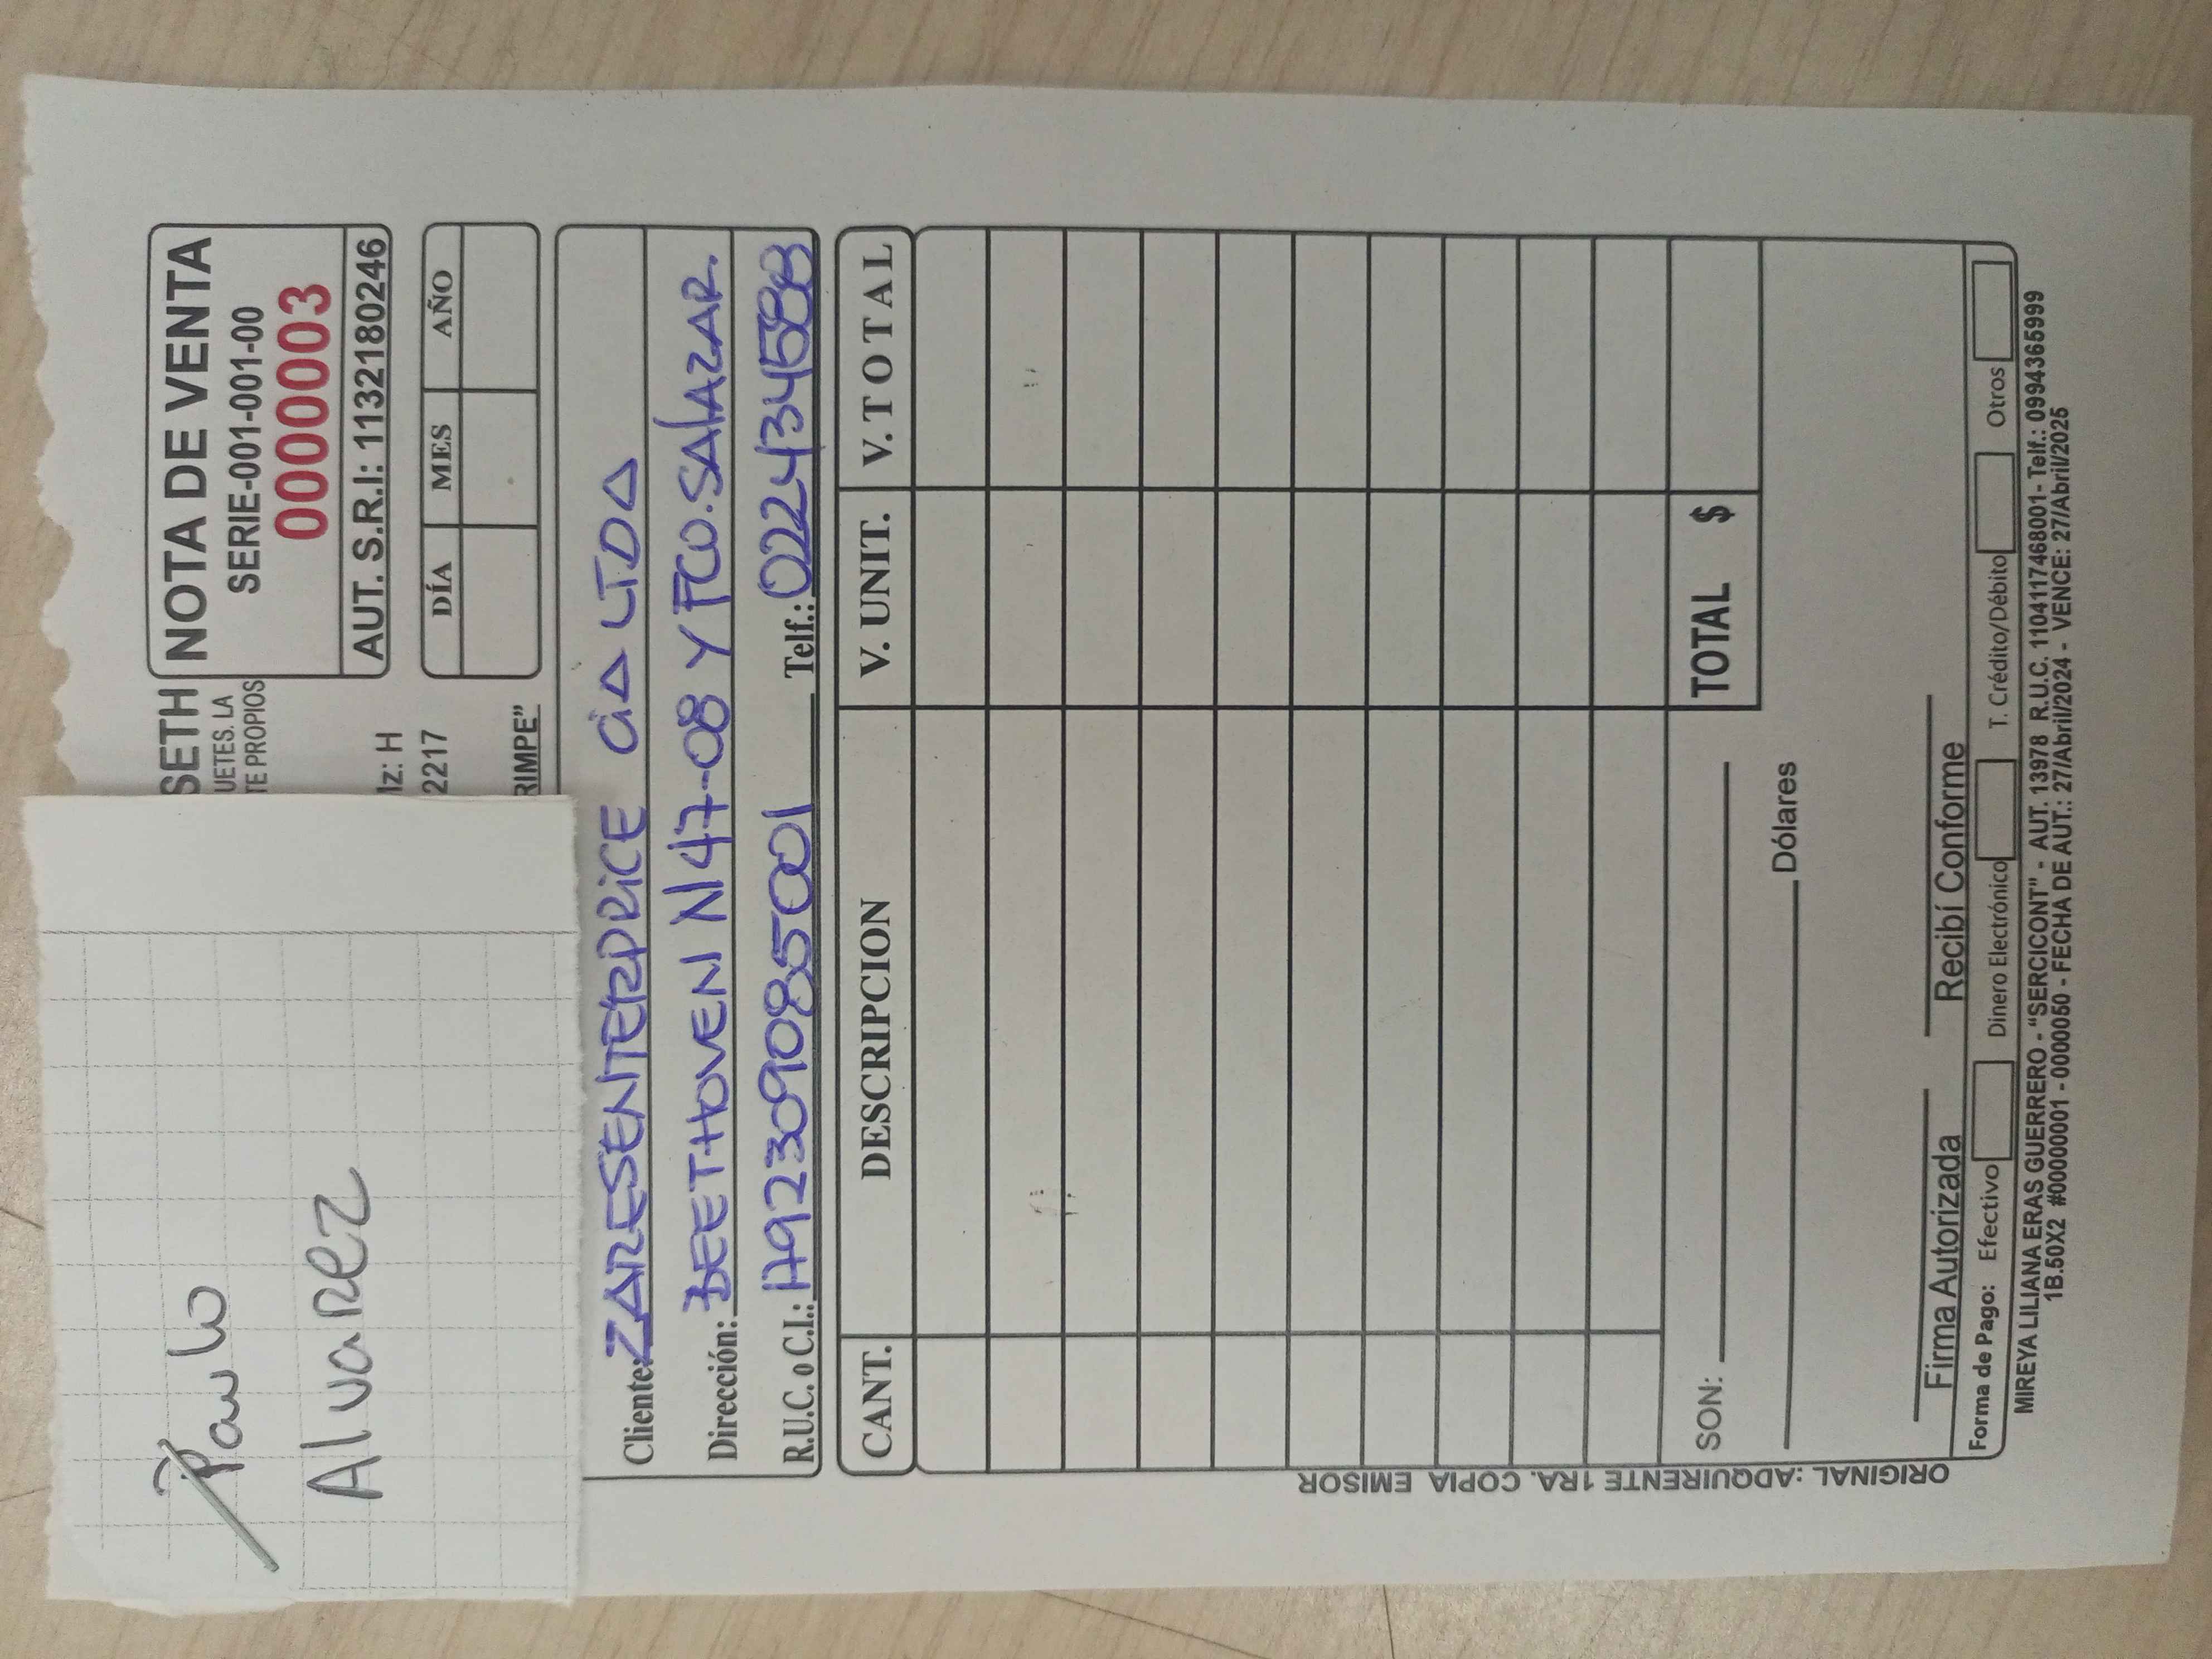 Paulo
Alvarez
SETH
UETES. LA
TE PROPIOS
Mz: H
2217
RIMPE”
NOTA DE VENTA
SERIE-001-001-00
0000003
AUT. S.R.I: 1132180246
DÍA MES AÑO
Cliente: ZARESENTERPRICE CIA LTDA
Dirección: BEETHOVEN N47-08 Y FCO. SALAZAR.
R.U.C. o C.I.: 1792309085001 Telf.: 022434588
CANT. DESCRIPCION V. UNIT. V. TOTAL
TOTAL $
SON:
Dólares
Firma Autorizada Recibí Conforme
Forma de Pago: Efectivo Dinero Electrónico T. Crédito/Débito Otros
MIREYA LILIANA ERAS GUERRERO - “SERCICONT” - AUT. 13978 R.U.C. 1104117468001- Telf.: 0994365999
1B.50X2 #00000001 - 0000050 - FECHA DE AUT.: 27/Abril/2024 - VENCE: 27/Abril/2025
ORIGINAL :ADQUIRENTE 1RA. COPIA EMISOR